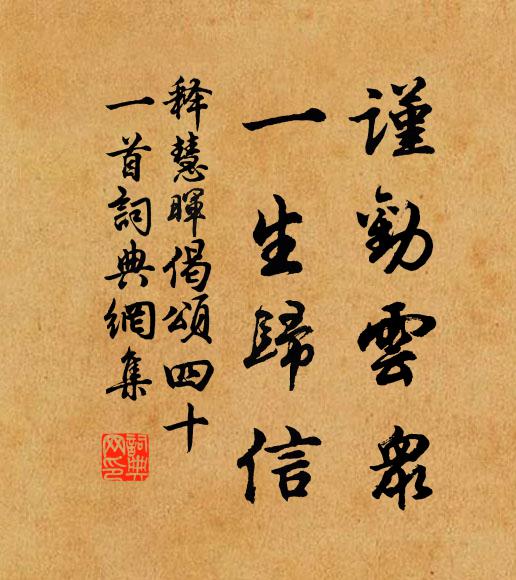 謹勸雲衆
一生歸信
释慧暉偈頌四十
一首詞典網集
詞典
网印